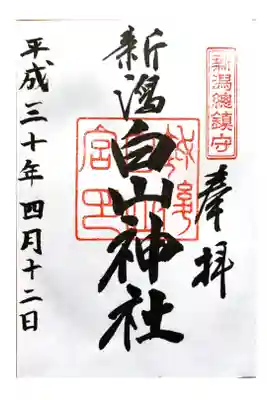 新潟總鎮守
奉拝
新潟白山神社
平成三十年四月十二日